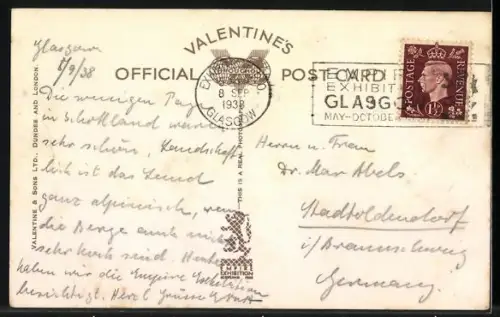 VALENTINE'S
OFFICIAL POST CARD
VALENTINE & SONS LTD., DUNDEE AND LONDON.
THIS IS A REAL PHOTOGRAPH
8 SEP
1938
GLASGOW
EMPIRE
EXHIBITION
GLASGOW
MAY-OCTOBER
POSTAGE
REVENUE
EMPIRE
EXHIBITION
Glasgow
7/9/38
Die wenigen Tage
in Schottland waren
sehr schön, Landschaft-
lich ist das Land
ganz alpinisch, wenn
die Berge auch nicht
sehr hoch sind. Heute
haben wir die Empire Exhibition
besichtigt. Herzl. Grüsse
Herrn u. Frau
Dr. Max Abels
Stadtoldendorf
i/Braunschweig
Germany.